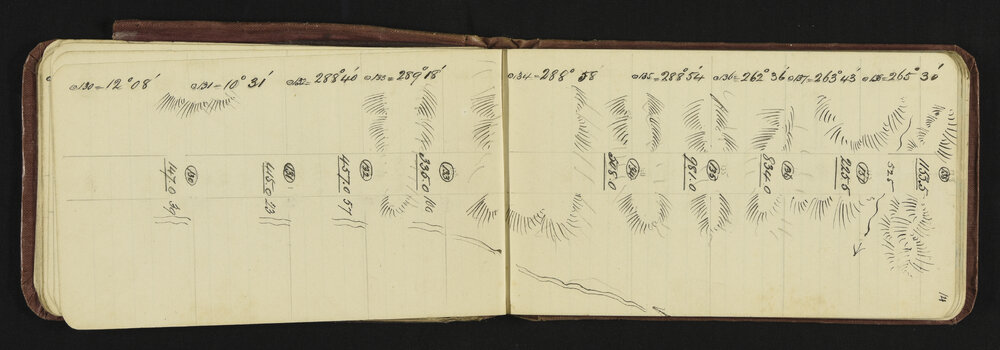 @130=12°08′ @131=10°31′ @132=288°40′ @133=289°18′
@134=288°58′ @135=288°54′ @136=262°36′ @137=263°43′ @138=265°30′
130
147.0 39
131
415.0 23
132
457.0 57
133
336.0
134
135
981.0
136
834.0
137
225.5
138
1135.5
52.5
14